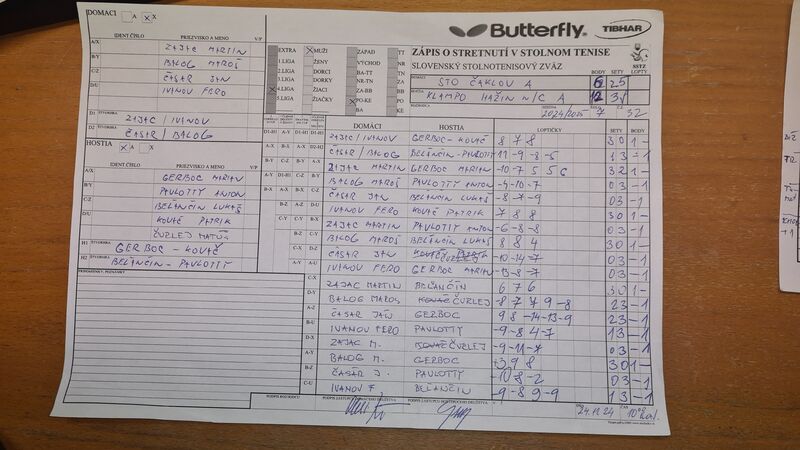 DOMÁCI A X
Butterfly TIBHAR
IDENT ČÍSLO PRIEZVISKO A MENO V/P
A/X ZAJAC MARTIN
B/Y BALOG MAROŠ
C/Z ČASÁR JÁN
D/U IVANOV FERO
D1 ŠTVORHRA ZAJAC / IVANOV
D2 ČASÁR / BALOG
EXTRA MUŽI ZÁPAD TT
1.LIGA ŽENY VÝCHOD NR
2.LIGA DORCI BA-TT TN
3.LIGA DORKY NR-TN ZA
4.LIGA ŽIACI ZA-BB BB
5.LIGA ŽIAČKY PO-KE PO
BA KE
ZÁPIS O STRETNUTÍ V STOLNOM TENISE
SLOVENSKÝ STOLNOTENISOVÝ ZVÄZ
SSTZ
BODY SETY LOPTY
DOMÁCI STO ČAKLOV A 6 25
HOSTIA KLAMPO HAŽÍN N/C A 12 38
2024/2025 7 32
HOSTIA X A X
IDENT ČÍSLO PRIEZVISKO A MENO V/P
A/X GERBOC MARIAN
B/Y PAVLOTTY ANTON
C/Z BELÁNČIN LUKÁŠ
D/U KOVÁČ PATRIK
ČURLEJ MATÚŠ
H1 ŠTVORHRA GERBOC - KOVÁČ
H2 ŠTVORHRA BELÁNČIN - PAVLOTTY
PRIPOMIENKY, POZNÁMKY
DOMÁCI HOSTIA LOPTIČKY SETY BODY
ZAJAC / IVANOV GERBOC - KOVÁČ 8 7 8 3 0 1 -
ČASÁR / BALOG BELÁNČIN - PAVLOTTY 11 -9 -8 -5 1 3 - 1
ZAJAC MARTIN GERBOC MARIAN -10 -7 5 5 6 3 2 1 -
BALOG MAROŠ PAVLOTTY ANTON -4 -10 -7 0 3 - 1
ČASÁR JÁN BELÁNČIN LUKÁŠ -8 -7 -9 0 3 - 1
IVANOV FERO KOVÁČ PATRIK 7 8 8 3 0 1 -
ZAJAC MARTIN PAVLOTTY ANTON -6 -8 -8 0 3 - 1
BALOG MAROŠ BELÁNČIN LUKÁŠ 8 8 4 3 0 1 -
ČASÁR JÁN ČURLEJ -10 -14 -7 0 3 - 1
IVANOV FERO GERBOC MARIAN -13 -8 -7 0 3 - 1
ZAJAC MARTIN BELÁNČIN 6 7 6 3 0 1 -
BALOG MAROŠ KOVÁČ ČURLEJ -8 7 7 -9 -8 2 3 - 1
ČASÁR JÁN GERBOC 9 8 -14 -13 -9 2 3 - 1
IVANOV FERO PAVLOTTY -9 -8 4 -7 1 3 - 1
ZAJAC M. KOVÁČ ČURLEJ -9 -11 -7 0 3 - 1
BALOG M. GERBOC 3 9 8 3 0 1 -
ČASÁR J. PAVLOTTY -10 -8 -2 0 3 - 1
IVANOV F BELÁNČIN -9 -8 9 -9 1 3 - 1
PODPIS ROZHODCU PODPIS ZÁSTUPCU DOMÁCEHO DRUŽSTVA PODPIS ZÁSTUPCU HOSŤUJÚCEHO DRUŽSTVA
24.11.24